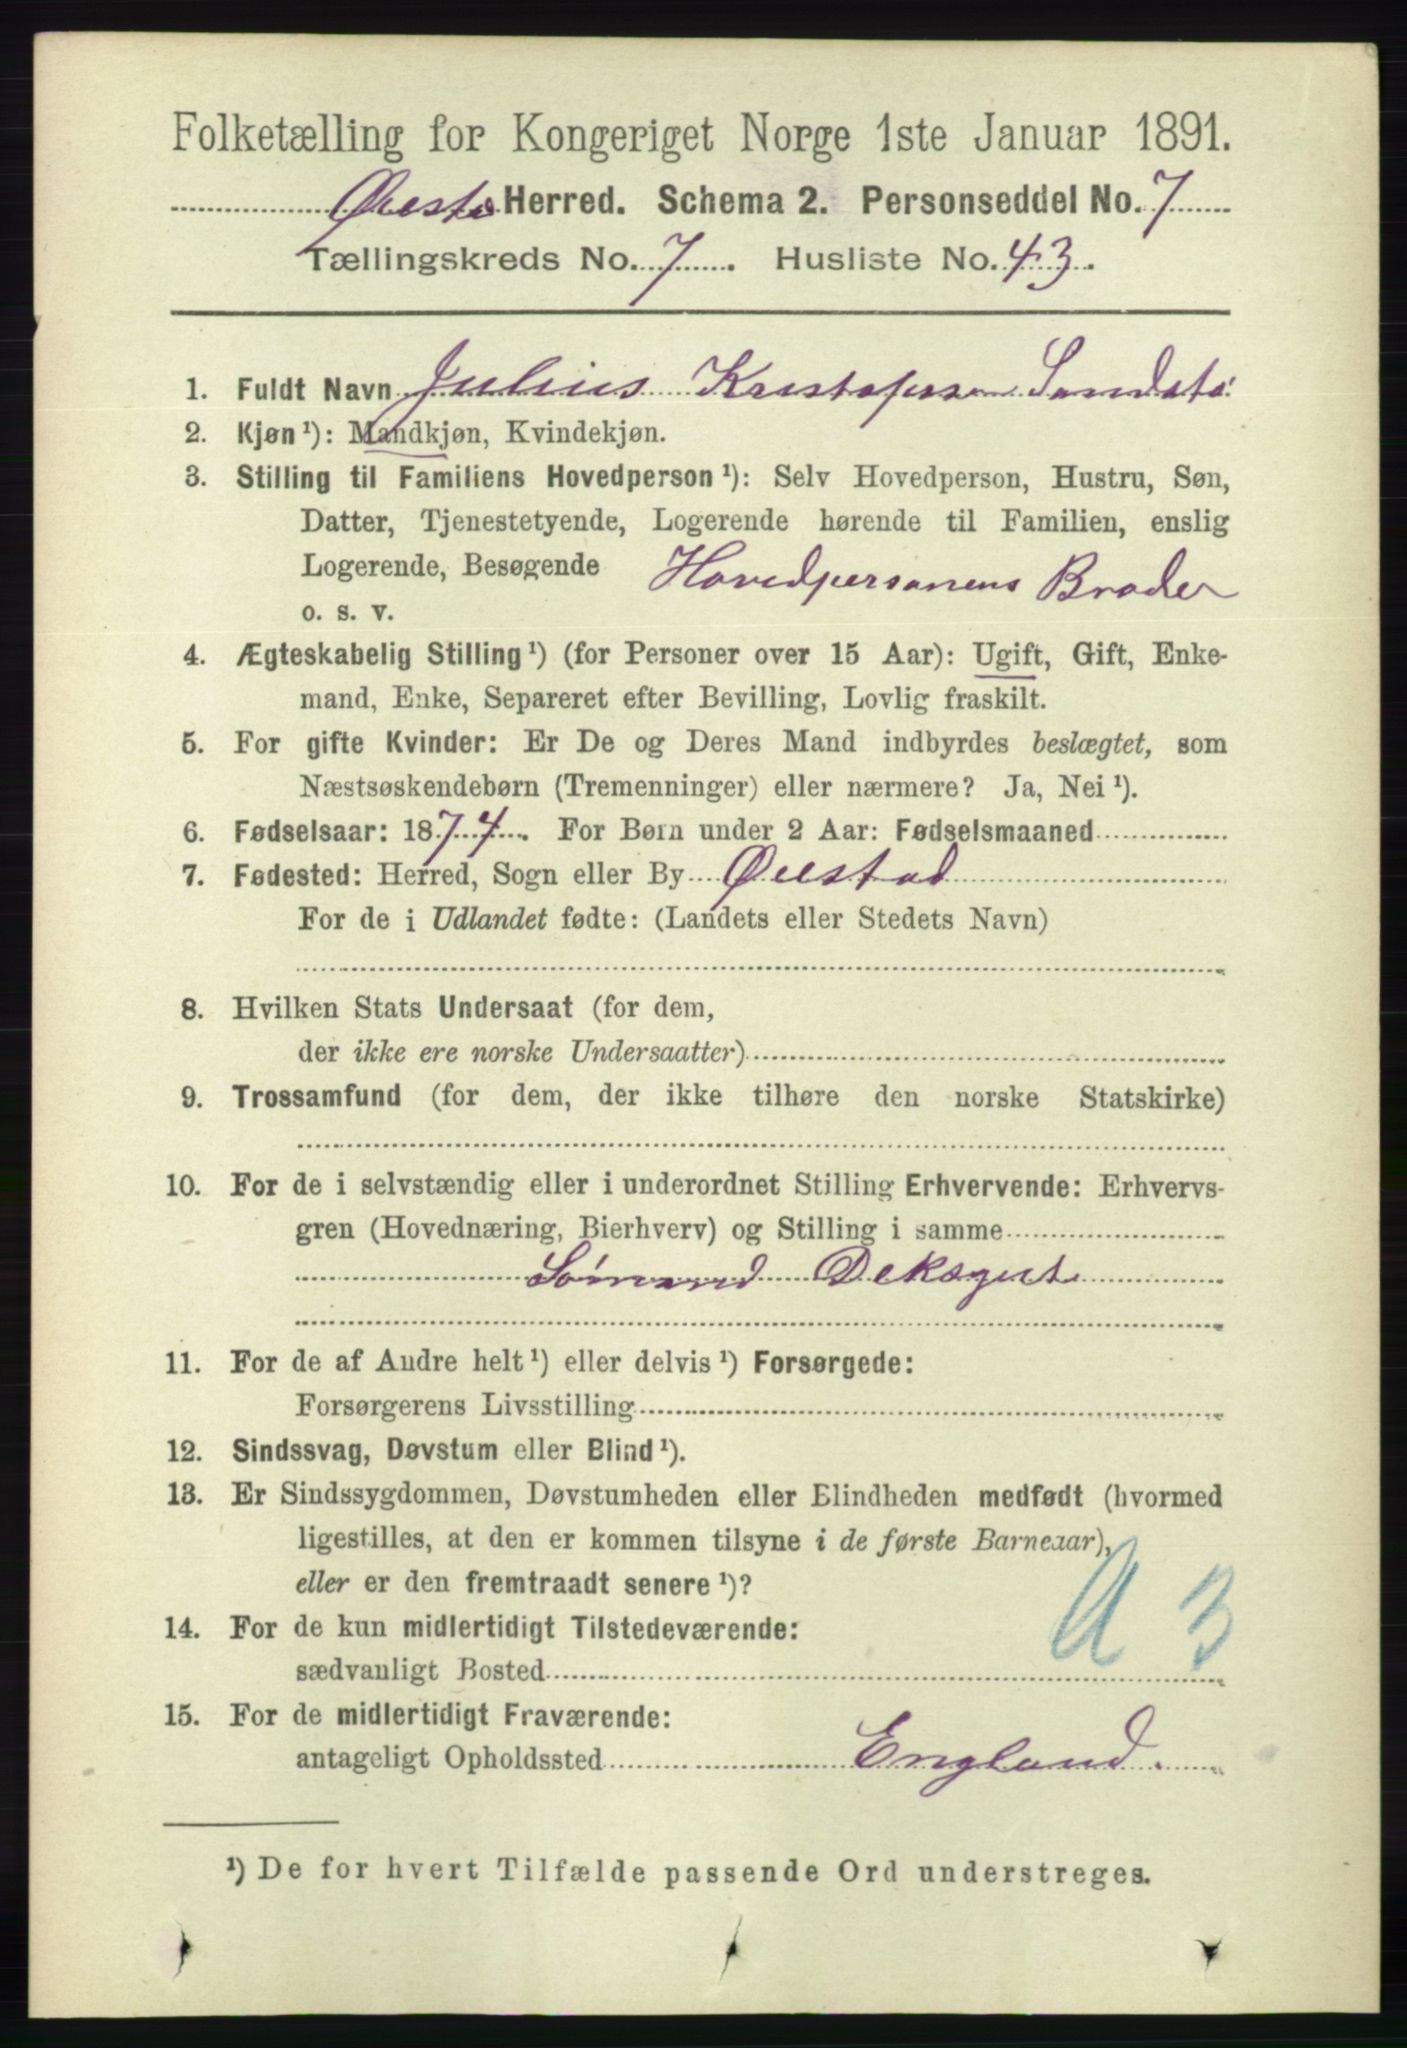 Folketælling for Kongeriget Norge 1ste Januar 1891.
Øiestad Herred. Schema 2. Personseddel No. 7
Tællingskreds No. 7. Husliste No. 43.
1. Fuldt Navn Julius Kristofersen Sandstø
2. Kjøn ¹): Mandkjøn, Kvindekjøn.
3. Stilling til Familiens Hovedperson ¹): Selv Hovedperson, Hustru, Søn,
Datter, Tjenestetyende, Logerende hørende til Familien, enslig
Logerende, Besøgende Hovedpersonens Broder
o. s. v.
4. Ægteskabelig Stilling ¹) (for Personer over 15 Aar): Ugift, Gift, Enke-
mand, Enke, Separeret efter Bevilling, Lovlig fraskilt.
5. For gifte Kvinder: Er De og Deres Mand indbyrdes beslægtet, som
Næstsøskendebørn (Tremenninger) eller nærmere? Ja, Nei ¹).
6. Fødselsaar: 1874. For Børn under 2 Aar: Fødselsmaaned
7. Fødested: Herred, Sogn eller By Øiestad
For de i Udlandet fødte: (Landets eller Stedets Navn)
8. Hvilken Stats Undersaat (for dem,
der ikke ere norske Undersaatter)
9. Trossamfund (for dem, der ikke tilhøre den norske Statskirke)
10. For de i selvstændig eller i underordnet Stilling Erhvervende: Erhvervs-
gren (Hovednæring, Bierhverv) og Stilling i samme
Sømand Deksgut
11. For de af Andre helt ¹) eller delvis ¹) Forsørgede:
Forsørgerens Livsstilling
12. Sindssvag, Døvstum eller Blind ¹).
13. Er Sindssygdommen, Døvstumheden eller Blindheden medfødt (hvormed
ligestilles, at den er kommen tilsyne i de første Barneaar),
eller er den fremtraadt senere ¹)?
U 3
14. For de kun midlertidigt Tilstedeværende:
sædvanligt Bosted
15. For de midlertidigt Fraværende:
antageligt Opholdssted England.
¹) De for hvert Tilfælde passende Ord understreges.